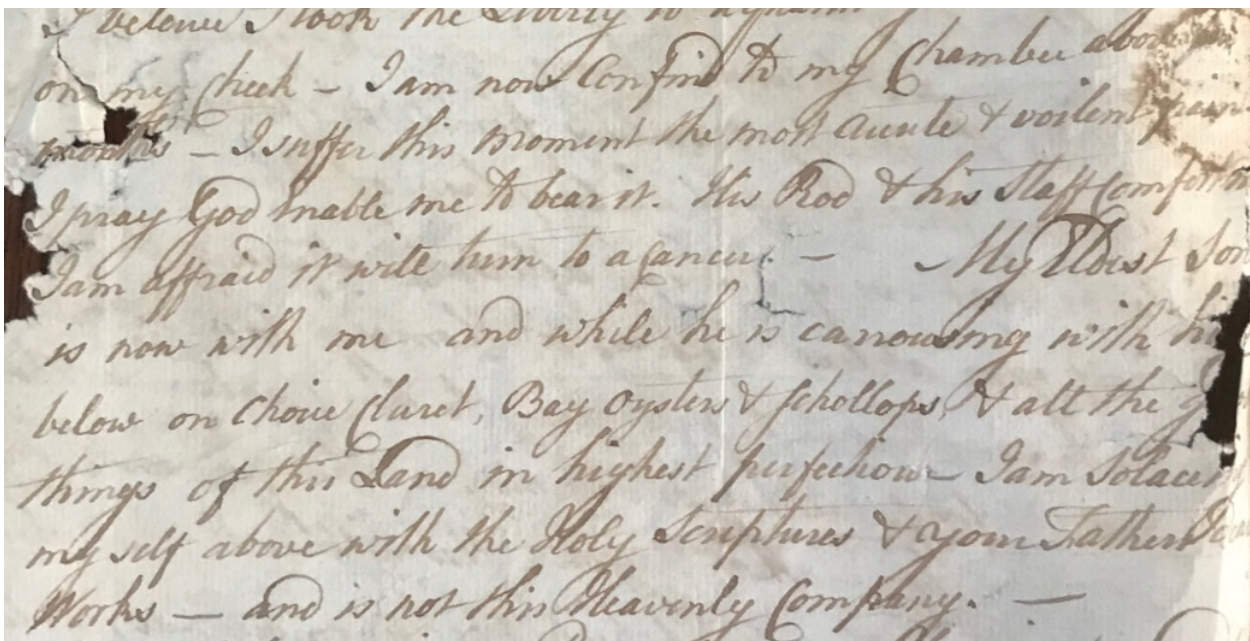 I beleive I took the Liberty to
on my Cheek – I am now Confin'd to my Chamber above
months – I suffer this moment the most accute & voilent pain
I pray God Enable me to bear it. His Rod & his Staff comfort me
I am affraid it will turn to a Cancer. – My Eldest Son
is now with me and while he is carrowsing with his
below on choice Claret, Bay Oysters & Schollops, & all the
things of this Land in highest perfection – I am Solacing
my self above with the Holy Scriptures & your Fathers
Works – and is not this Heavenly Company. –